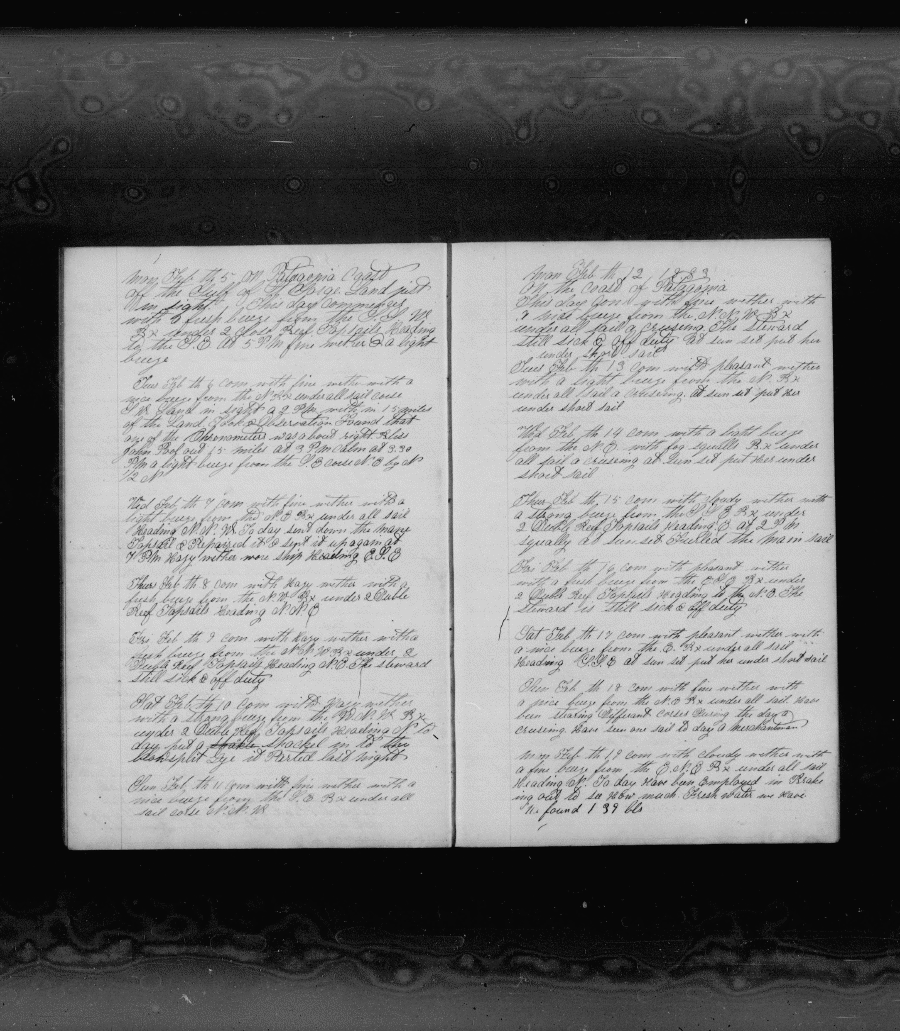 Mon Feb th 5 on Patagonia Coast
off the Gulf of St Gorge Land just
in sight This day Commences
with a fresh breeze from the S. S. W.
Bx under 2 close Reef Topsails Heading
to the S. E at 5 PM fine wether & a light
breeze
Tues Feb th 6 com with fine wether with a
nice breeze from the N Bx under all sail corse
S W Land in sight at 2 P.M. with in 15 miles
of the Land Took a Observation Found that
one of the Chronometers was about right Bliss
John Pool out 15 miles at 3 PM Calm at 3.30
PM a light breeze from the S E corse N E by N
1/2 N
Wed Feb th 7 com with fine wether with a
light breeze from the N E Bx under all sail
Heading N. N. W. To day sent down the main
Topsail & Repaired it & sent it up again at
7 P.M Hazy wether wore ship Heading E S E
Thurs Feb th 8 com with Hazy wether with a
fresh breeze from the N. W Bx under 2 Duble
Reef Topsails Heading N N E
Fri Feb th 9 com with hazy wether with a
fresh breeze from the N. N. W Bx under 2
Duble Reef Topsails Heading N. E. The steward
still sick & off duty
Sat Feb. th 10 Com with Hazy wether
with a strong breeze from the N. W. Bx
under 2 Duble Reef Topsails Heading N To
day put a shackel in to
split Eye it Parted last night
Sun Feb. th 11 com with fine wether with a
nice breeze from the S. E Bx under all
sail corse N. N. W
Mon Feb th 12 1883
On the Coast of Patagonia
This day Com with fine wether with
a nice breeze from the N. N. W Bx
under all sail a crusing The Steward
still sick & off duty at sun set put her
under short sail
Tues Feb th 13 Com with pleasant wether
with a light breeze from the N. Bx
under all sail a crusing. at sun set put her
under short sail
Wed Feb th 14 com with a breeze
from the N. E. with fog squalls Bx under
all sail a crusing at sun set put her under
short sail
Thur Feb th 15 com with cloudy wether with
a strong breeze from the S. S E Bx under
2 Duble Reef Topsails Heading E at 2 P.M
squaly at sun set Furlled the main sail
Fri Feb th 16 com with pleasant wether
with a fresh breeze from the E S E Bx under
2 Duble Reef Topsails Heading to the N. E. The
Steward is still sick & off duty
Sat Feb th 17 com with pleasant wether with
a nice breeze from the E. Bx under all sail
Heading S. S. E at sun set put her under short sail
Sun Feb th 18 com with fine wether with
a nice breeze from the N. E Bx under all sail. Have
been stearing Diferant corses During the day a
crusing. Have seen one sail to day a Merchantman
Mon Feb th 19 com with cloudy wether with
a fine breeze from the E. N. E Bx under all sail
Heading N. To day Have been Employed in Brake
ing out to see How much Fresh water we Have
We found 1 39 bls